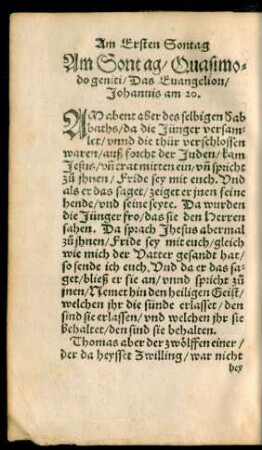 Am Ersten Sontag
Am Sontag/ Quasimo-
do geniti/ Das Euangelion/
Johannis am 20.
AM abent aber des selbigen Sab
baths/ da die Jünger versam-
let/ vnnd die thür verschlossen
waren/ auß forcht der Juden/ kam
Jesus/ vñ trat mitten ein/ vñ spricht
zů jhnen/ Fride sey mit euch. Vnd
als er das saget/ zeiget er jnen seine
hende/ vnd seine seyte. Da wurden
die Jünger fro/ das sie den Herren
sahen. Da sprach Jhesus abermal
zů jhnen/ Fride sey mit euch/ gleich
wie mich der Vatter gesandt hat/
so sende ich euch. Vnd da er das sa-
get/ bließ er sie an/ vnnd spricht zů
jnen/ Nemet hin den heiligen Geist/
welchen jhr die sünde erlasset/ den
sind sie erlassen/ vnd welchen jhr sie
behaltet/ den sind sie behalten.
Thomas aber der zwölffen einer/
der da heysset Zwilling/ war nicht
bey